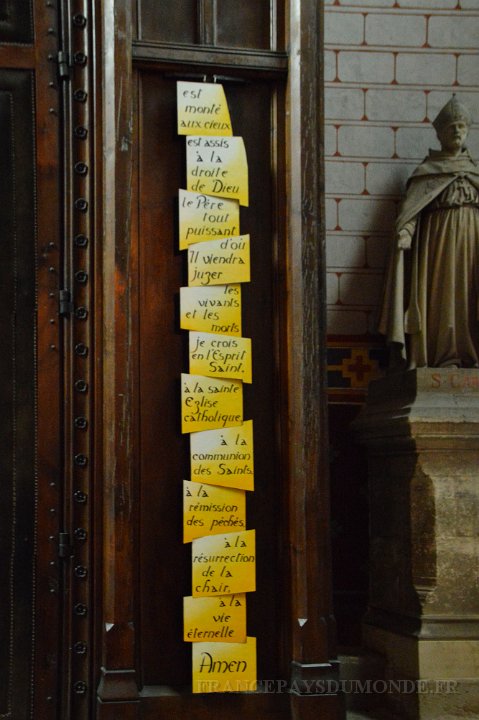 est
monté
aux cieux
est assis
à la
droite
de Dieu
le Père
tout
puissant
d'où
Il viendra
juger
les
vivants
et les
morts
je crois
en l'Esprit
Saint,
à la sainte
Eglise
catholique,
à la
communion
des Saints,
à la
rémission
des péchés,
à la
résurrection
de la
chair,
à la
vie
éternelle
Amen
FRANCEPAYSDUMONDE.FR